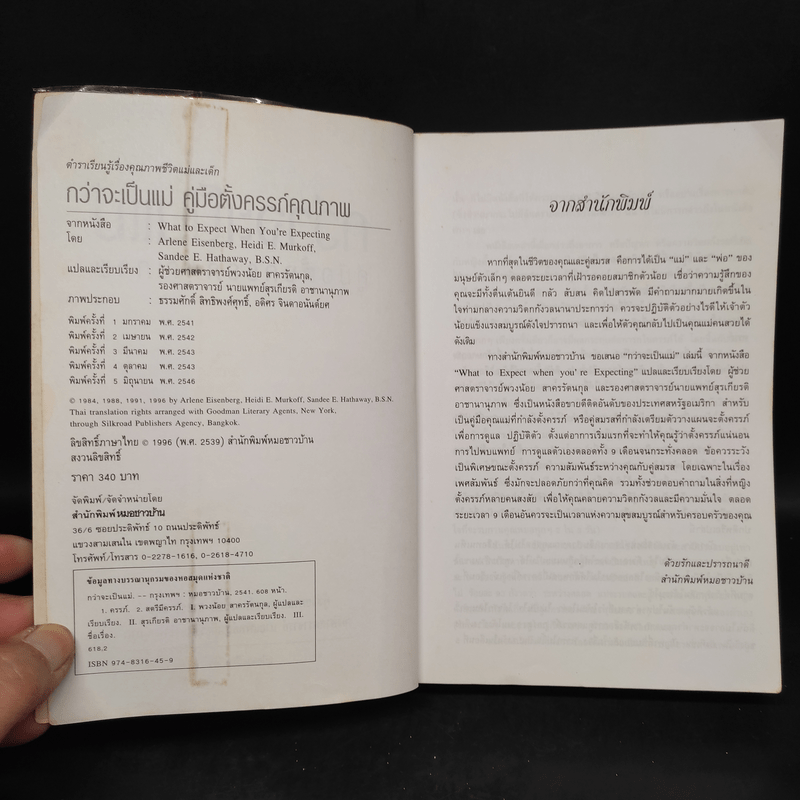 ตำราเรียนรู้เรื่องคุณภาพชีวิตแม่และเด็ก
กว่าจะเป็นแม่ คู่มือตั้งครรภ์คุณภาพ
จากหนังสือ : What to Expect When You're Expecting
โดย : Arlene Eisenberg, Heidi E. Murkoff,
Sandee E. Hathaway, B.S.N.
แปลและเรียบเรียง : ผู้ช่วยศาสตราจารย์พวงน้อย สาครรัตนกุล,
รองศาสตราจารย์ นายแพทย์สุรเกียรติ อาชานานุภาพ
ภาพประกอบ : ธรรมศักดิ์ สิทธิพงศ์ศุทธิ์, อดิศร จินดาอนันต์ยศ
พิมพ์ครั้งที่ 1 มกราคม พ.ศ. 2541
พิมพ์ครั้งที่ 2 เมษายน พ.ศ. 2542
พิมพ์ครั้งที่ 3 มีนาคม พ.ศ. 2543
พิมพ์ครั้งที่ 4 ตุลาคม พ.ศ. 2543
พิมพ์ครั้งที่ 5 มิถุนายน พ.ศ. 2546
© 1984, 1988, 1991, 1996 by Arlene Eisenberg, Heidi E. Murkoff, Sandee E. Hathaway, B.S.N.
Thai translation rights arranged with Goodman Literary Agents, New York,
through Silkroad Publishers Agency, Bangkok.
ลิขสิทธิ์ภาษาไทย © 1996 (พ.ศ. 2539) สำนักพิมพ์หมอชาวบ้าน
สงวนลิขสิทธิ์
ราคา 340 บาท
จัดพิมพ์/จัดจำหน่ายโดย
สำนักพิมพ์หมอชาวบ้าน
36/6 ซอยประดิพัทธ์ 10 ถนนประดิพัทธ์
แขวงสามเสนใน เขตพญาไท กรุงเทพฯ 10400
โทรศัพท์/โทรสาร 0-2278-1616, 0-2618-4710
ข้อมูลทางบรรณานุกรมของหอสมุดแห่งชาติ
กว่าจะเป็นแม่. -- กรุงเทพฯ : หมอชาวบ้าน, 2541. 608 หน้า.
1. ครรภ์. 2. สตรีมีครรภ์. I. พวงน้อย สาครรัตนกุล, ผู้แปลและ
เรียบเรียง. II. สุรเกียรติ อาชานานุภาพ, ผู้แปลและเรียบเรียง. III.
ชื่อเรื่อง.
618.2
ISBN 974-8316-45-9
จากสำนักพิมพ์
หากที่สุดในชีวิตของคุณและคู่สมรส คือการได้เป็น "แม่" และ "พ่อ" ของ
มนุษย์ตัวเล็กๆ ตลอดระยะเวลาที่เฝ้ารอคอยสมาชิกตัวน้อย เชื่อว่าความรู้สึกของ
คุณจะมีทั้งตื่นเต้นยินดี กลัว สับสน คิดไปสารพัด มีคำถามมากมายเกิดขึ้นใน
ใจท่ามกลางความวิตกกังวลนานาประการว่า ควรจะปฏิบัติตัวอย่างไรดีให้เจ้าตัว
น้อยแข็งแรงสมบูรณ์ดังใจปรารถนา และเพื่อให้ตัวคุณกลับไปเป็นคุณแม่คนสวยได้
ดังเดิม
ทางสำนักพิมพ์หมอชาวบ้าน ขอเสนอ "กว่าจะเป็นแม่" เล่มนี้ จากหนังสือ
"What to Expect when you're Expecting" แปลและเรียบเรียงโดย ผู้ช่วย
ศาสตราจารย์พวงน้อย สาครรัตนกุล และรองศาสตราจารย์นายแพทย์สุรเกียรติ
อาชานานุภาพ ซึ่งเป็นหนังสือขายดีติดอันดับของประเทศสหรัฐอเมริกา สำหรับ
เป็นคู่มือคุณแม่ที่กำลังตั้งครรภ์ หรือคู่สมรสที่กำลังเตรียมตัววางแผนจะตั้งครรภ์
เพื่อการดูแล ปฏิบัติตัว ตั้งแต่อาการเริ่มแรกที่จะทำให้คุณรู้ว่าตั้งครรภ์แน่นอน
การไปพบแพทย์ การดูแลตัวเองตลอดทั้ง 9 เดือนจนกระทั่งคลอด ข้อควรระวัง
เป็นพิเศษขณะตั้งครรภ์ ความสัมพันธ์ระหว่างคุณกับคู่สมรส โดยเฉพาะในเรื่อง
เพศสัมพันธ์ ซึ่งมักจะปลอดภัยกว่าที่คุณคิด รวมทั้งช่วยตอบคำถามในสิ่งที่หญิง
ตั้งครรภ์หลายคนสงสัย เพื่อให้คุณคลายความวิตกกังวลและมีความมั่นใจ ตลอด
ระยะเวลา 9 เดือนอันควรจะเป็นเวลาแห่งความสุขสมบูรณ์สำหรับครอบครัวของคุณ
ด้วยรักและปรารถนาดี
สำนักพิมพ์หมอชาวบ้าน